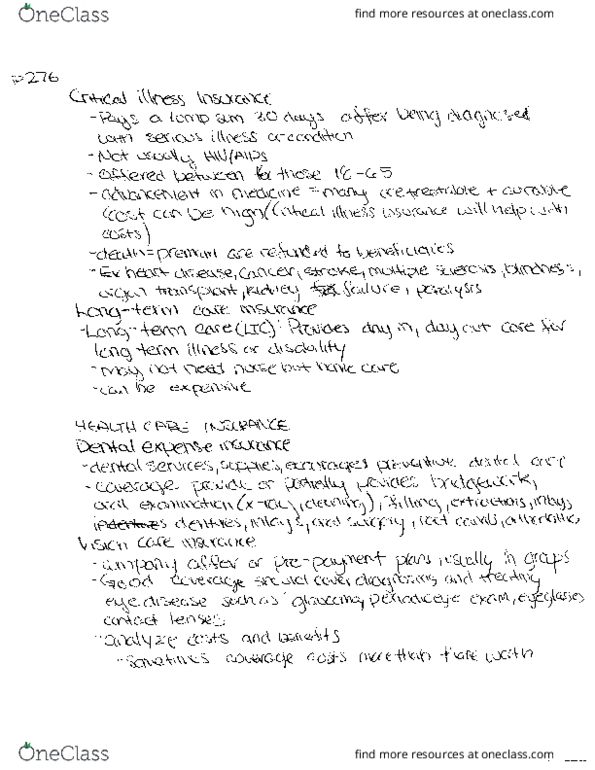 OneClass
find more resources at oneclass.com
p276
Critical illness Insurance
- Pays a lump sum 30 days after being diagnosed
with serious illness or condition
- Not usually HIV/AIDS
- Offered between for those 18-65
- advancement in medicine = many are treatable + curable
(cost can be high (critical illness insurance will help with
costs)
- death = premium are refunded to beneficiaries
- Ex heart disease, cancer, stroke, multiple sclerosis, blindness,
organ transplant, kidney failure, paralysis
Long-term care insurance
- Long-term care (LTC): Provides day in, day out care for
long term illness or disability
- may not need nurse but home care
- can be expensive
HEALTH CARE INSURANCE
Dental expense insurance
- dental services, supplies, encourages preventive dental care
- coverage provide or partially provides bridgework,
oral examination (x-ray, cleaning), filling, extractions, inlays
dentures, inlays, oral surgery, root canals,
Vision care insurance
- company offer or pre-payment plans, usually in groups
- Good coverage should cover diagnosing and treating
eye disease such as glaucoma, periodic eye exam, eyeglasses
contact lenses
- analyze costs and benefits
- sometimes coverage costs more than worth
OneClass
find more resources at oneclass.com